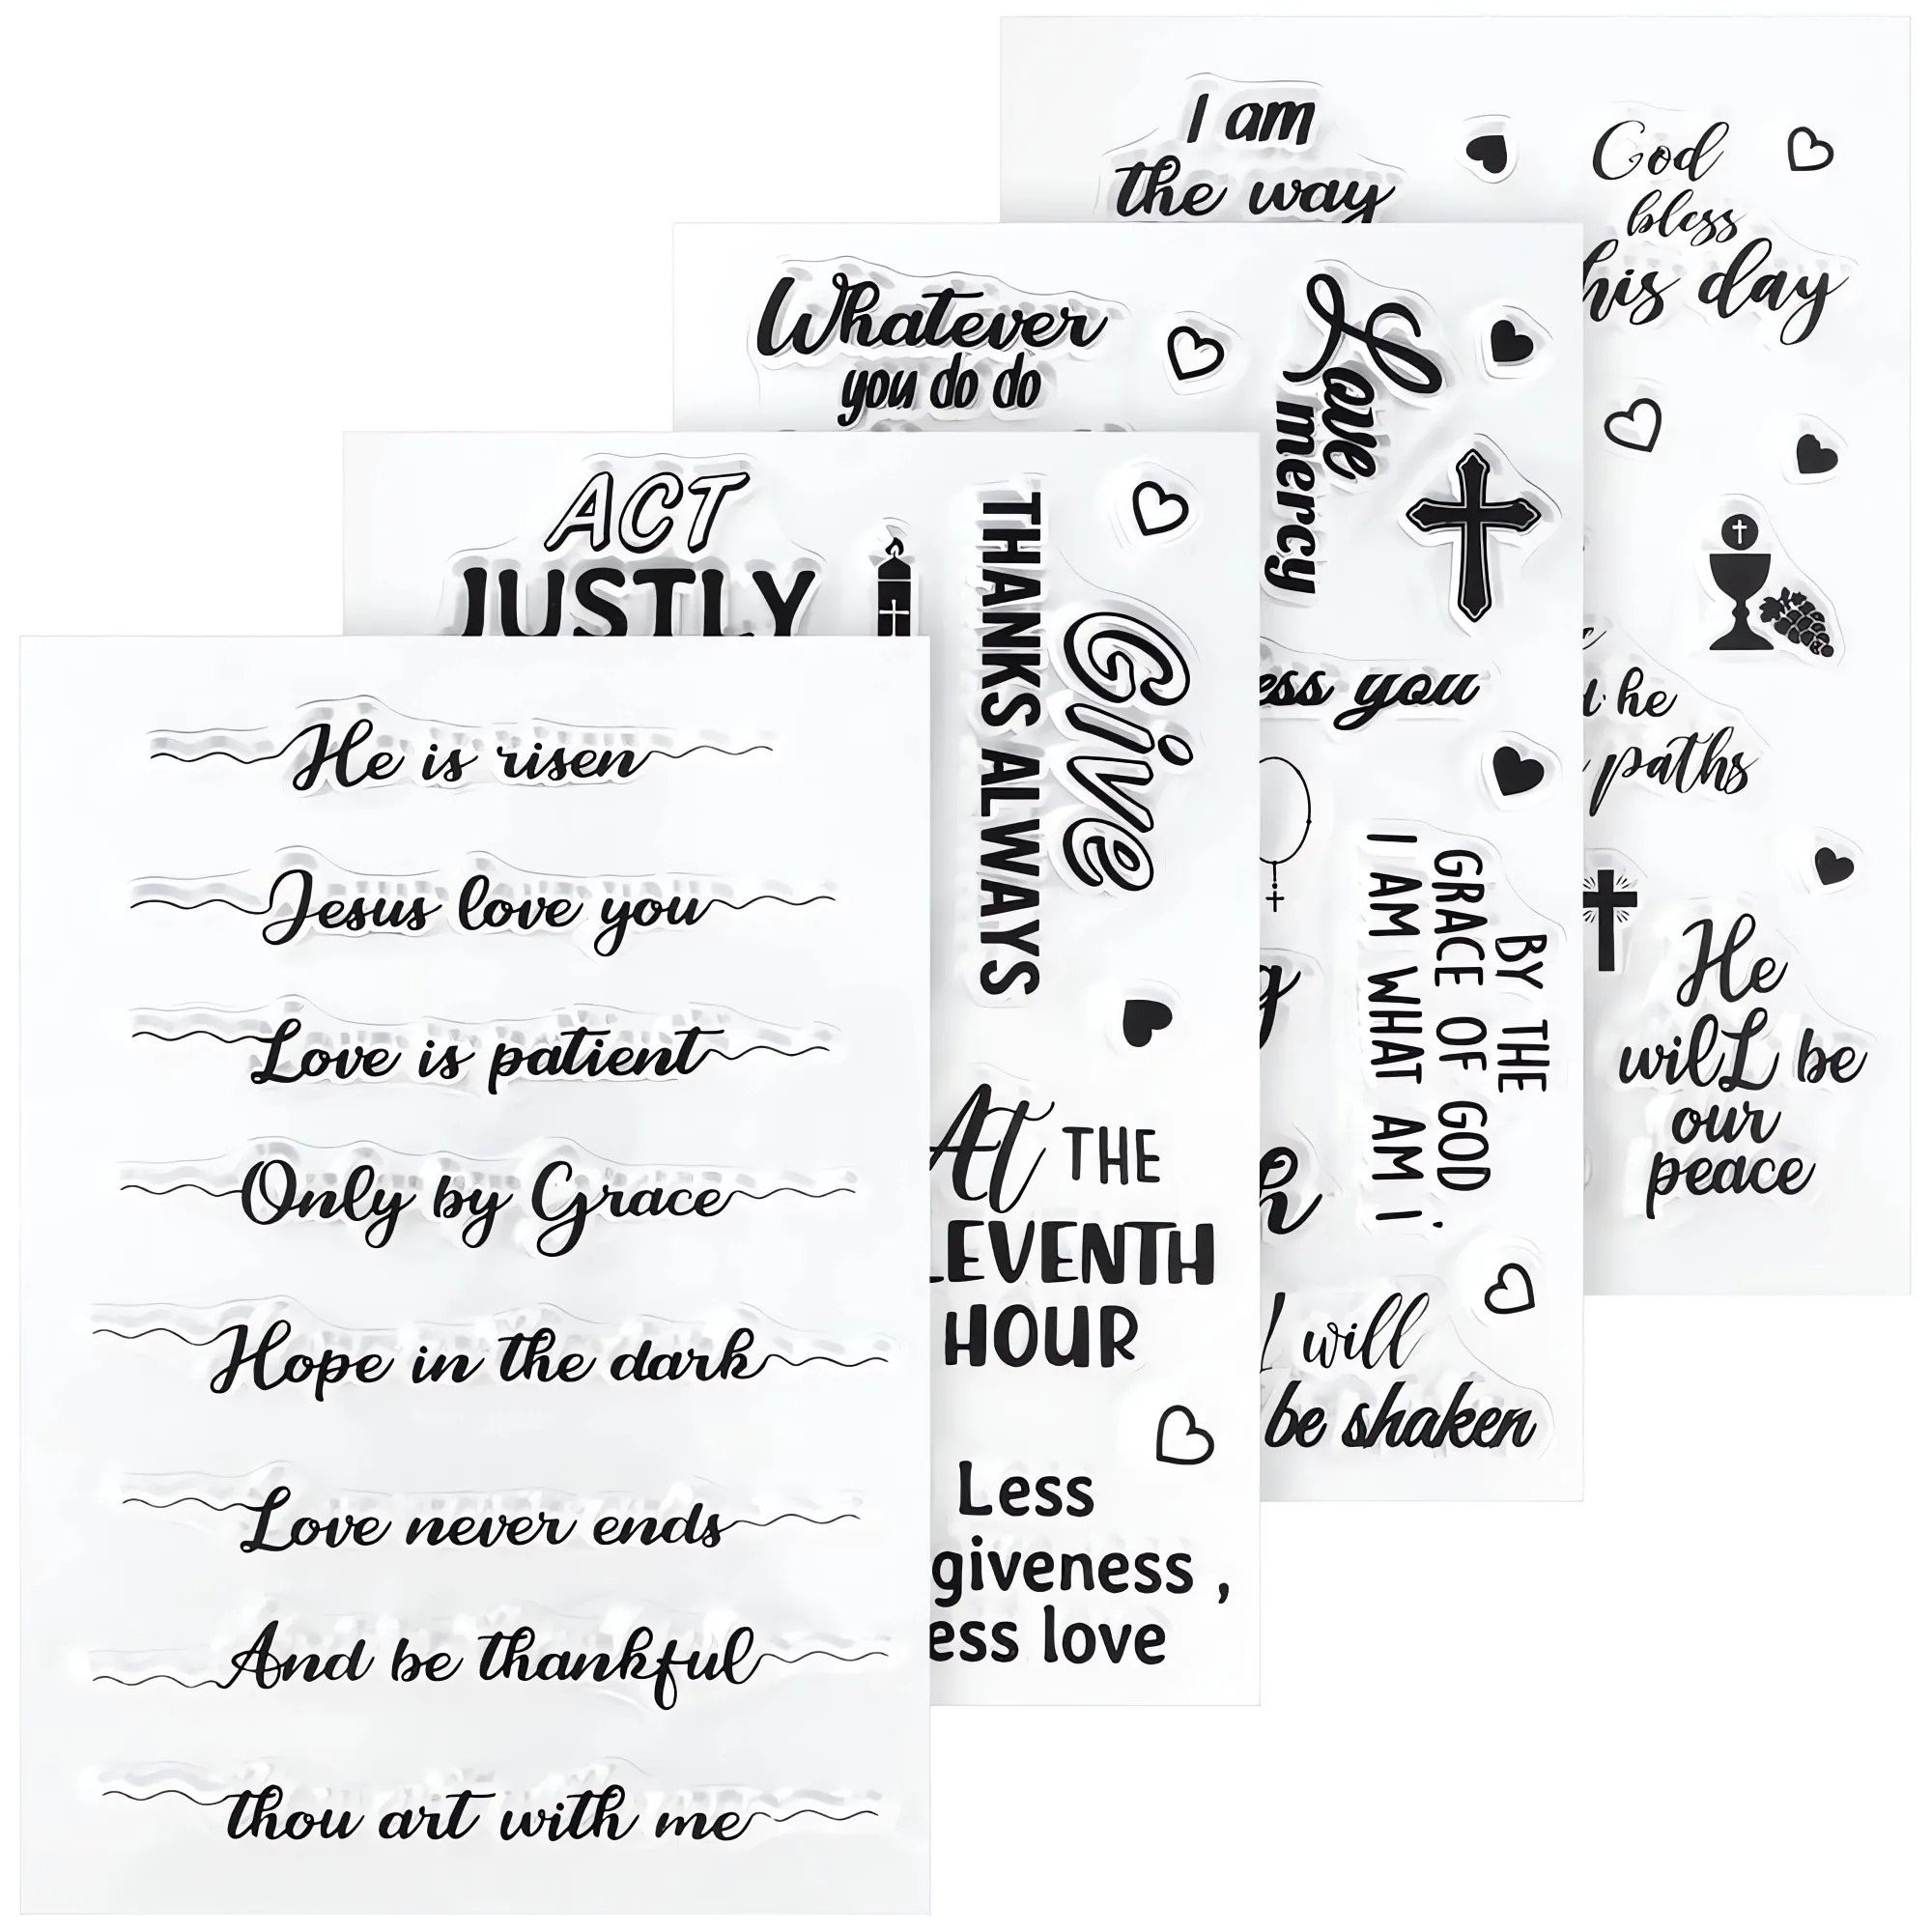 He is risen
Jesus love you
Love is patient
Only by Grace
Hope in the dark
Love never ends
And be thankful
thou art with me
ACT
JUSTLY
Give
THANKS ALWAYS
At THE
LEVENTH
HOUR
Less
giveness ,
ess love
Whatever
you do do
Love
mercy
ess you
g
BY THE
GRACE OF GOD
I AM WHAT AM I'
h
I will
be shaken
I am
the way
God
bless
his day
he
paths
He
wilL be
our
peace